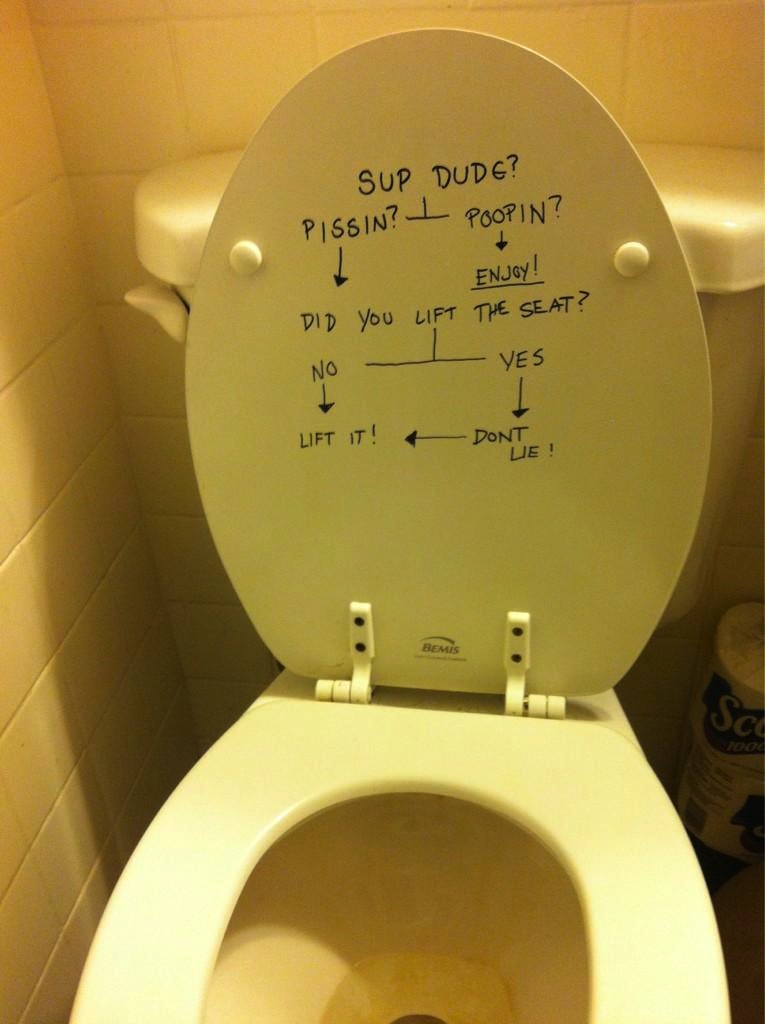 SUP DUDE?
PISSIN? POOPIN?
ENJOY!
DID YOU LIFT THE SEAT?
NO YES
LIFT IT! DONT
LIE!
BEMIS
Sco
1000